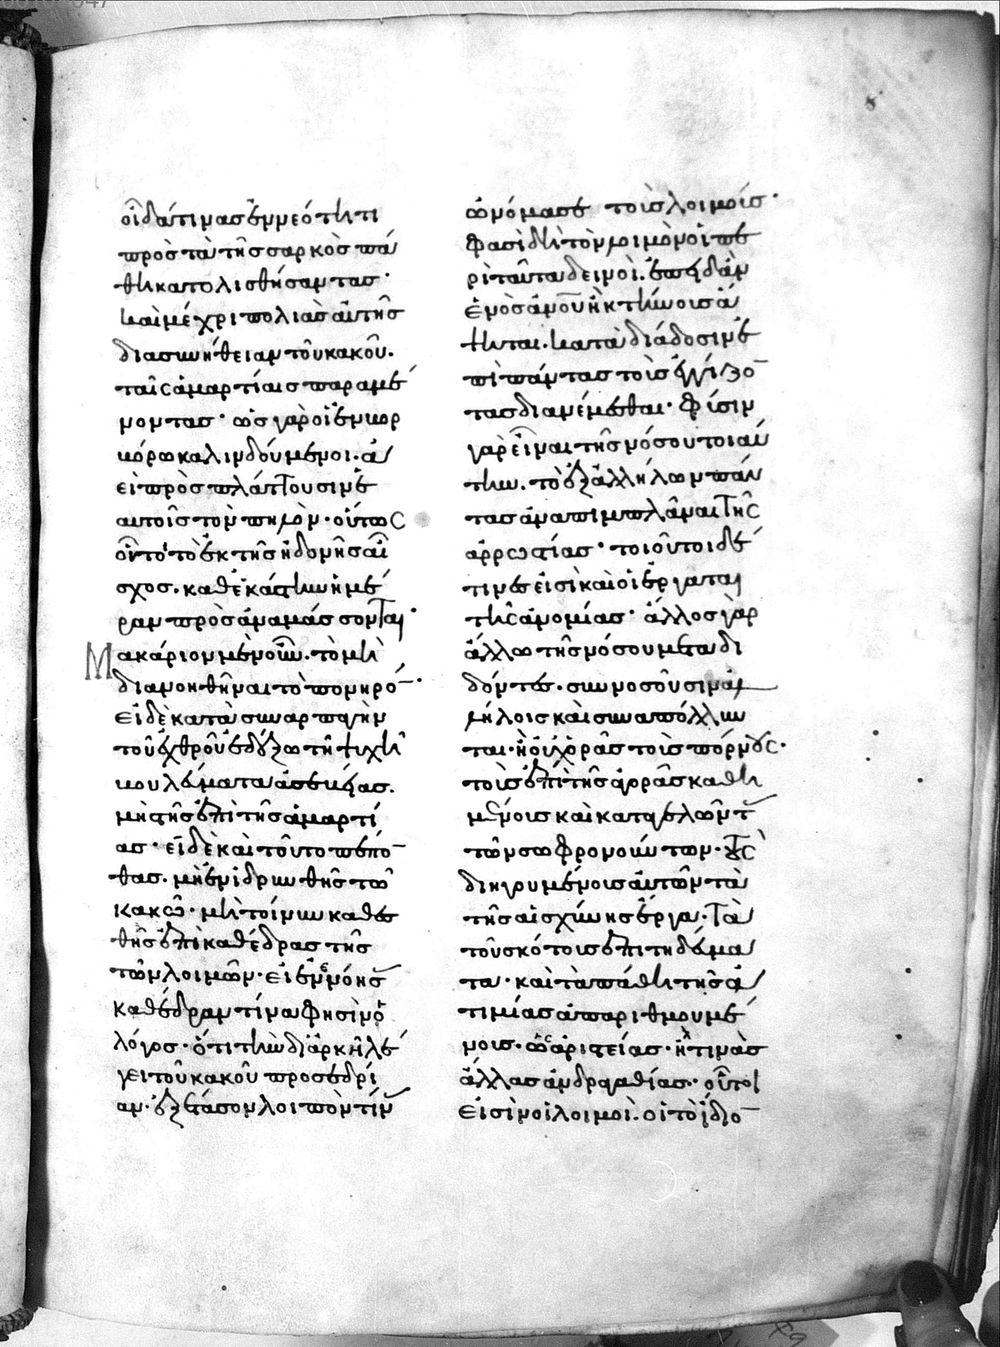 οἶδά τινας ἐν νεότητι
πρὸς τὰ τῆς σαρκὸς πά
θη κατολισθήσαντας·
καὶ μέχρι πολιᾶς αὐτῆς
διὰ συνήθειαν τοῦ κακοῦ.
ταῖς ἁμαρτίαις παραμεί
νοντας· ὡς γὰρ οἱ ἐν βορ
βόρω καλινδούμενοι. ἀ
εὶ προσπλάττουσιν ἑ
αυτοῖς τὸν πηλὸν· οὕτως
οὗτοι τὸ ἐκ τῆς ἡδονῆς αἶ
σχος. καθ' ἑκάστην ἡμέ
ραν προσαναμάσσονται·
Μακάριον μὲν οὖν. τὸ μὴ
διανοηθῆναι τὸ πονηρό(ν)·
εἰ δὲ κατὰ συναρπαγὴν
τοῦ ἐχθροῦ ἐδέξω τῆ ψυχῆ
βουλεύματα ἀσεβείας.
μὴ στῆς ἐπὶ τῆς ἁμαρτί
ας· εἰ δὲ καὶ τοῦτο πέπο(ν)
θας. μὴ ἐνιδρυνθῆς τῶ
κακῶ· μὴ τοίνυν καθεσ
θῆς ἐπὶ καθέδρας τῆς
τῶν λοιμῶν· εἰ ἐνενόησ(ας)
καθέδραν τίνα φησὶν ὁ
λόγος· ὅτι τὴν διαρκῆ λέ
γει τοῦ κακοῦ προσεδρί
αν· ἐξέτασον λοιπὸν τίν(ας)
ὠνόμασε τοῖς λοιμοῖς·
φασὶ δὴ τὸν λοιμὸν οἱ πε
ρὶ ταῦτα δεινοὶ. ἐπειδὰν
ἑνὸς ἀν(θρώπ)ου ἢ κτήνους ἅ
ψηται. κατὰ διάδοσιν ἐ
πὶ πάντας τοὺς ἐγγίζο(ν)
τας διανέμεσθαι· φύσιν
γὰρ εἶναι τῆς νόσου τοιαύ
την. τὸ ἐξ ἀλλήλων πάν
τας ἀναπίμπλαναι τῆς
ἀρρωστίας· τοιοῦτοι δέ
τινες εἰσὶ καὶ οἱ ἐργάται
τῆς ἀνομίας· ἄλλος γὰρ
ἄλλω τῆς νόσου μεταδι
δόντες. συννοσοῦσιν ἀλ
λήλοις καὶ συναπόλλυν
ται· ἢ οὐχ ὁρᾶς τοὺς πόρνους·
τοῖς ἐπὶ τῆς ἀγορᾶς καθη
μένοις καὶ καταγελῶντ(ας)
τῶν σωφρονούντων· τοῖς
διηγουμένοις αὐτῶν τὰ
τῆς αἰσχύνης ἔργα. τὰ
τοῦ σκότους ἐπιτηδεύμα
τα· καὶ τὰ πάθη τῆς ἀ
τιμίας ἀπαριθμουμέ
νοις. ὡς ἀριστείας· ἤ τινας
ἄλλας ἀνδραγαθίας· οὗτοι
εἰσὶν οἱ λοιμοὶ. οἱ τὸ ἴδιο(ν)